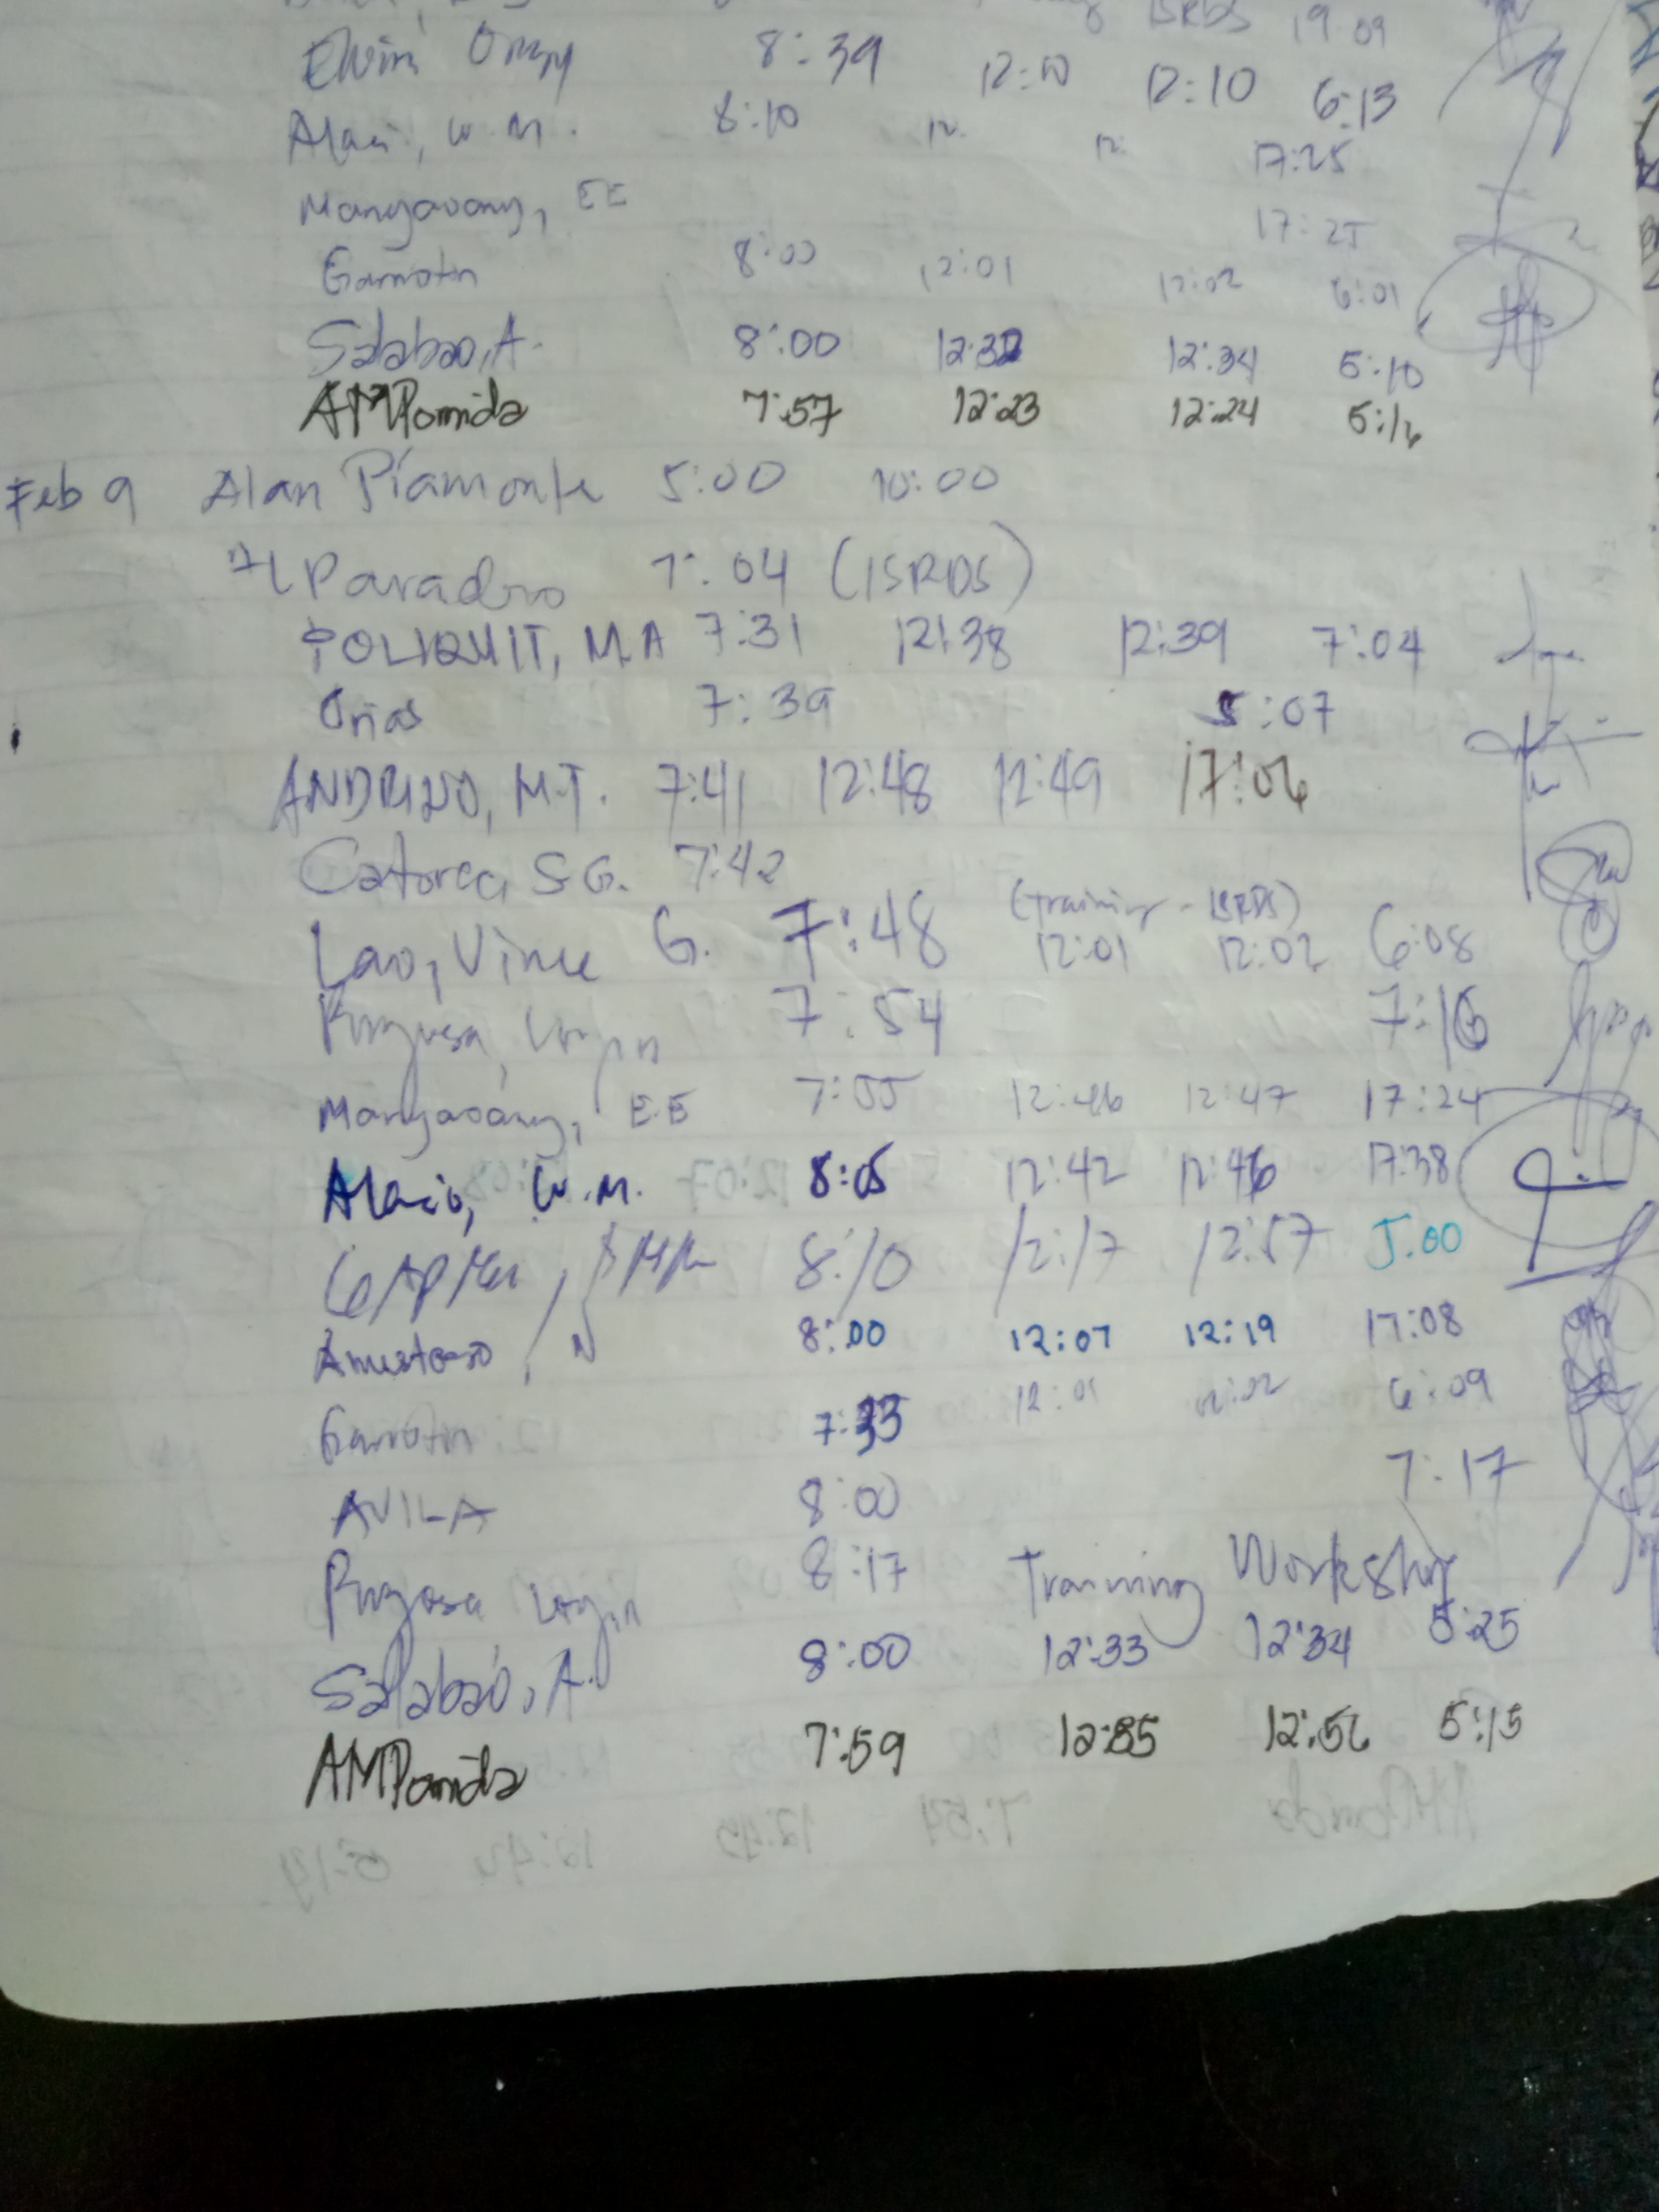 ISRDS 19 09
Elvin 8:39 12:10 12:10 6:13
Alacio, W.M. 8:10 12: 12: 17:25
Mangaoang, EE 17:25
Garrotin 8:00 12:01 12:02 6:01
Salabao, A. 8:00 12:32 12:34 5:10
AMPomida 7:57 12:23 12:24 5:16
Feb 9 Alan Piamonte 5:00 10:00
Paradero 7:04 (ISRDS)
POLIQUIT, M.A 7:31 12:38 12:39 7:04
Orias 7:39 5:07
M.T. 7:41 12:48 12:49 17:06
S.G. 7:42
(training - ISRDS)
Lao, Vince G. 7:48 12:01 12:02 6:08
7:54 7:16
Mangaoang, E.E 7:55 12:46 12:47 17:24
Alacio, W.M. 8:05 12:42 12:46 17:38
8:10 12:17 12:57 5.00
Amestoso, N 8:00 12:07 12:19 17:08
Garrotin 7:33 12:01 12:02 6:09
AVILA 8:00 7:17
8:17 Training Workshop
Salabao, A. 8:00 12:33 12:34 5:25
AMPomida 7:59 12:55 12:56 5:15